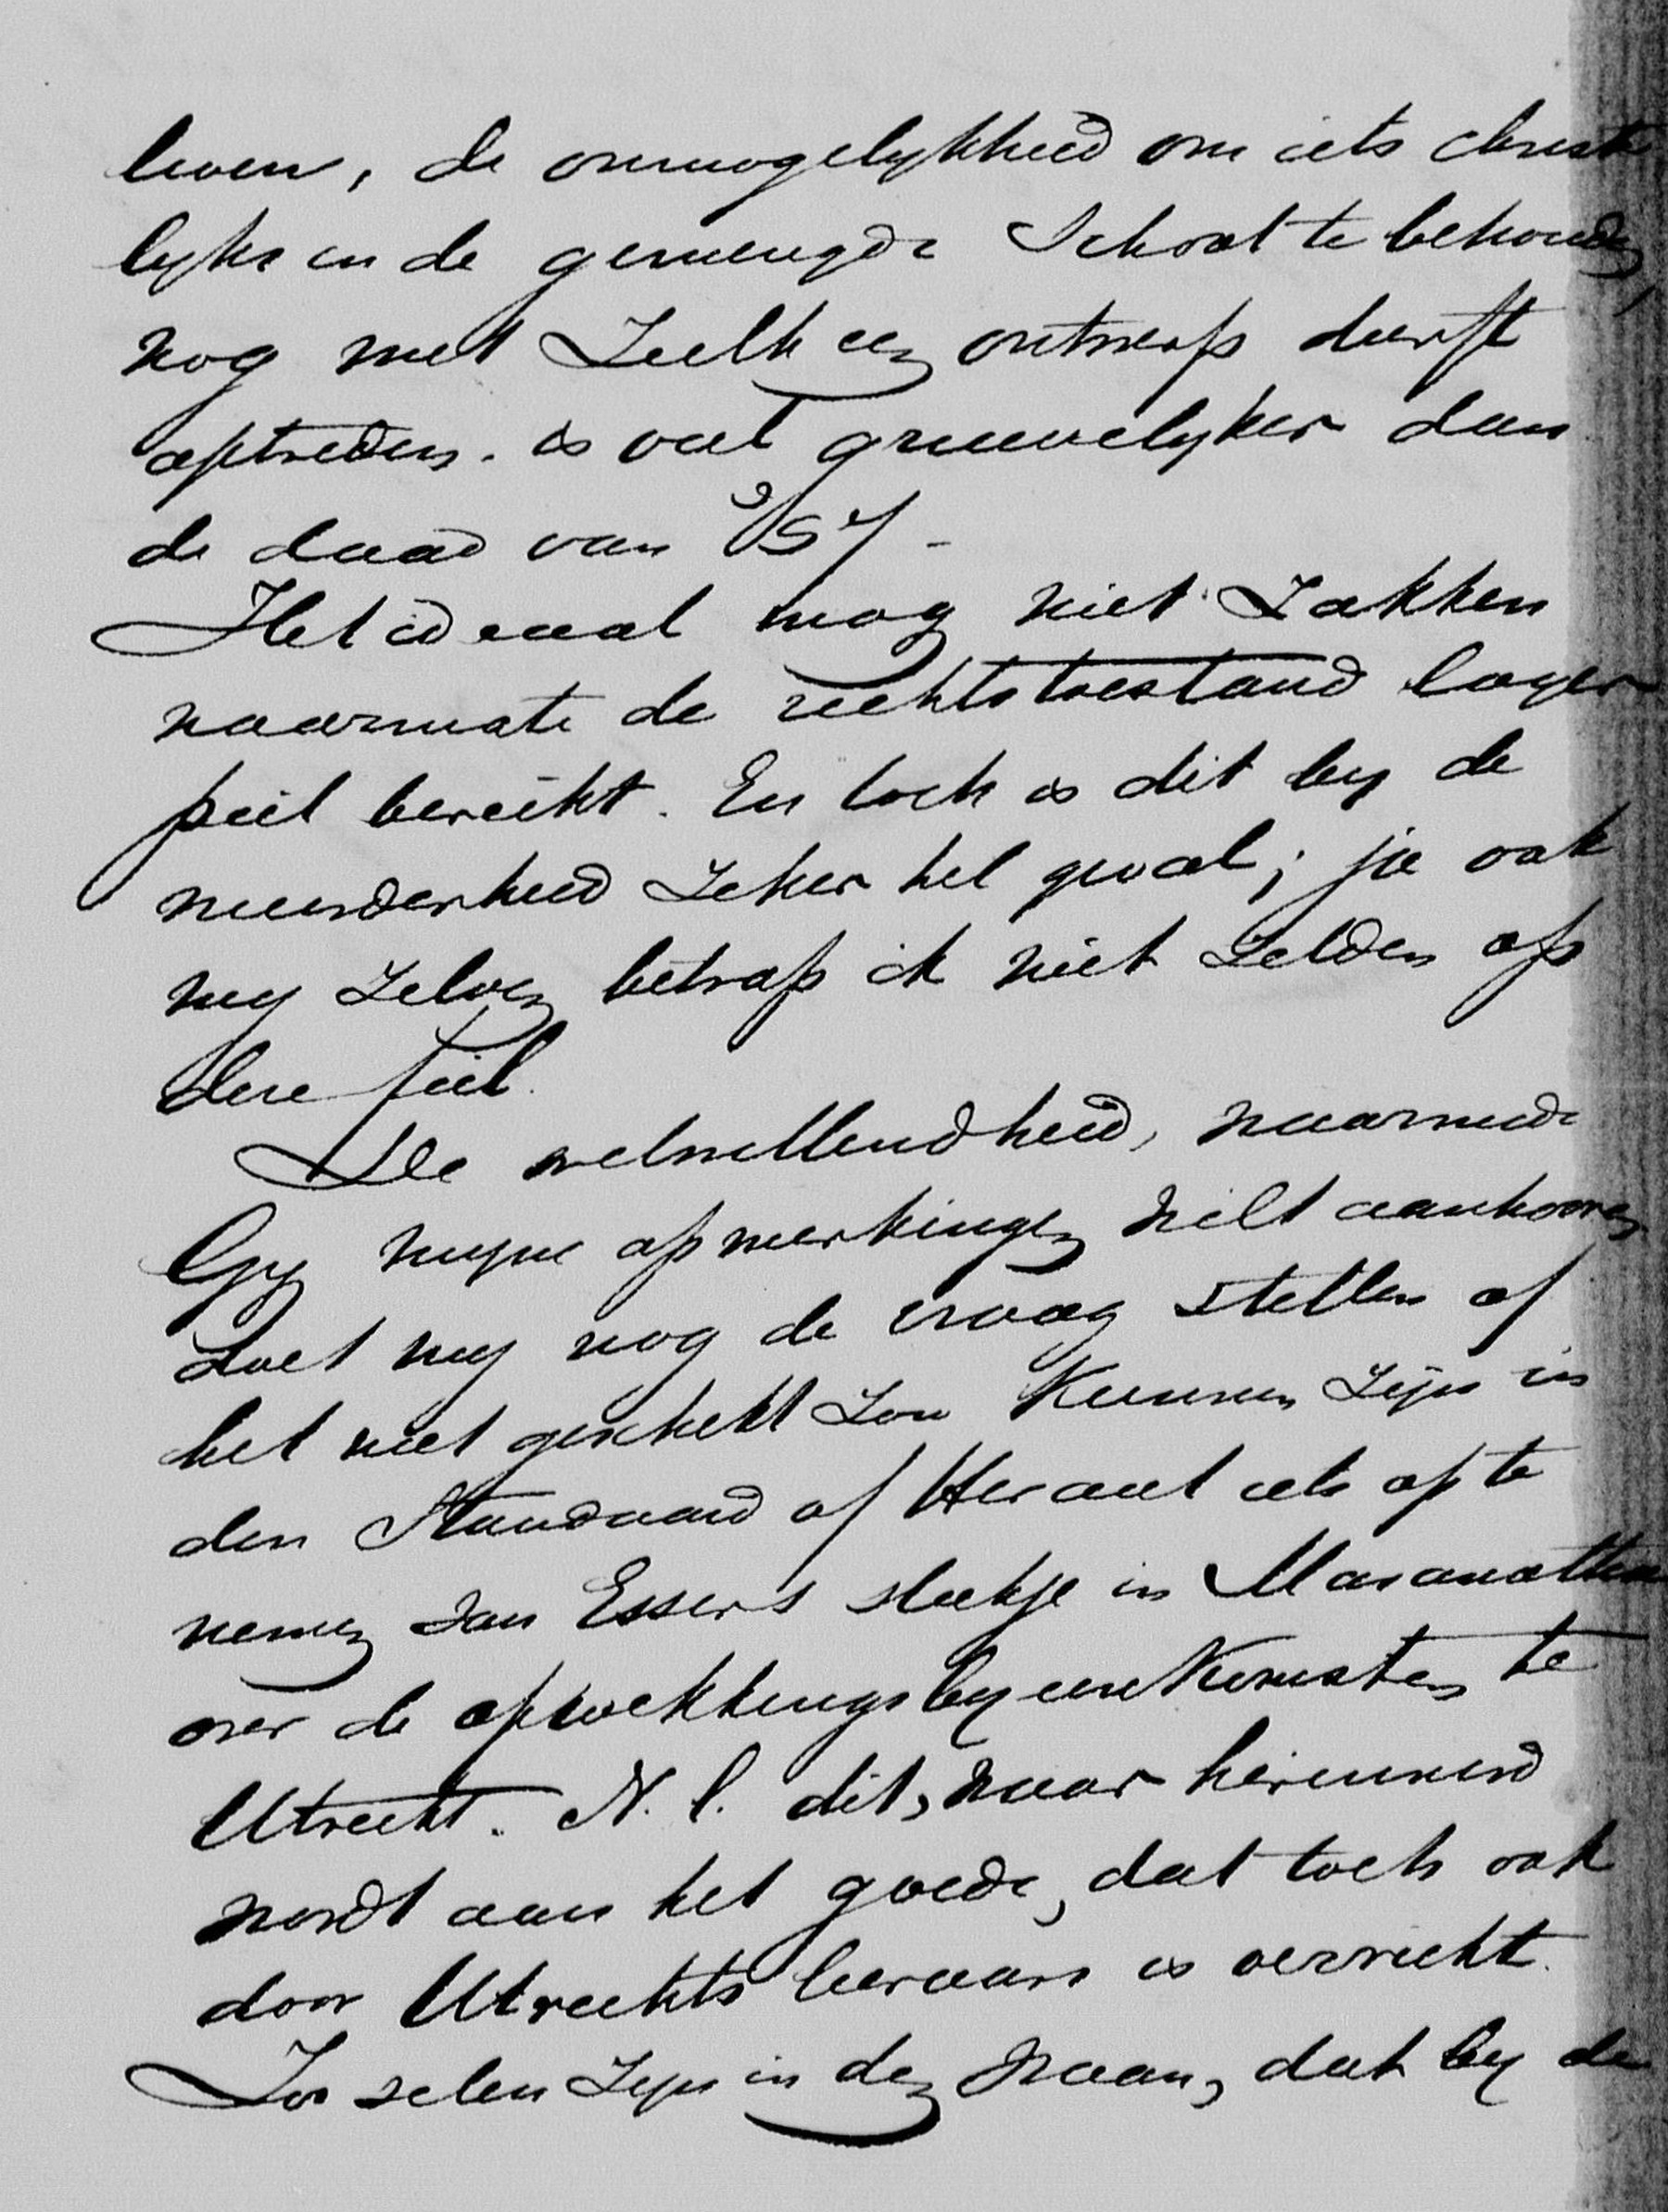 leven, de onmogelykheid om iets christe
lyks in de gemengde School te behouden,
nog met Zulk een ontwerp durft
optreden. is veel gruwelyker dan
de daad van '57-
Het ideaal mag niet Zakken
naarmate de rechtstoestand lager
peil bereikt. En toch is dit by de
meerderheid Zeker het geval; ja ook
my Zelven betrap ik niet Zelden op
deze feil.
De welwillendheid, waarmede
Gy myne opmerkingen wilt aanhooren
doet my nog de vraag stellen of
het niet geschikt Zou Kunnen Zijn in
den Standaard of Heraut iets op te
nemen van Essers stukje in Maranatha
over de opwekkingsbyeenkomsten te
Utrecht. N.l. dit, waar herinnerd
wordt aan het goede, dat toch ook
door Utrechts leeraars is verricht.
Zoo velen Zyn in den waan, dat by de